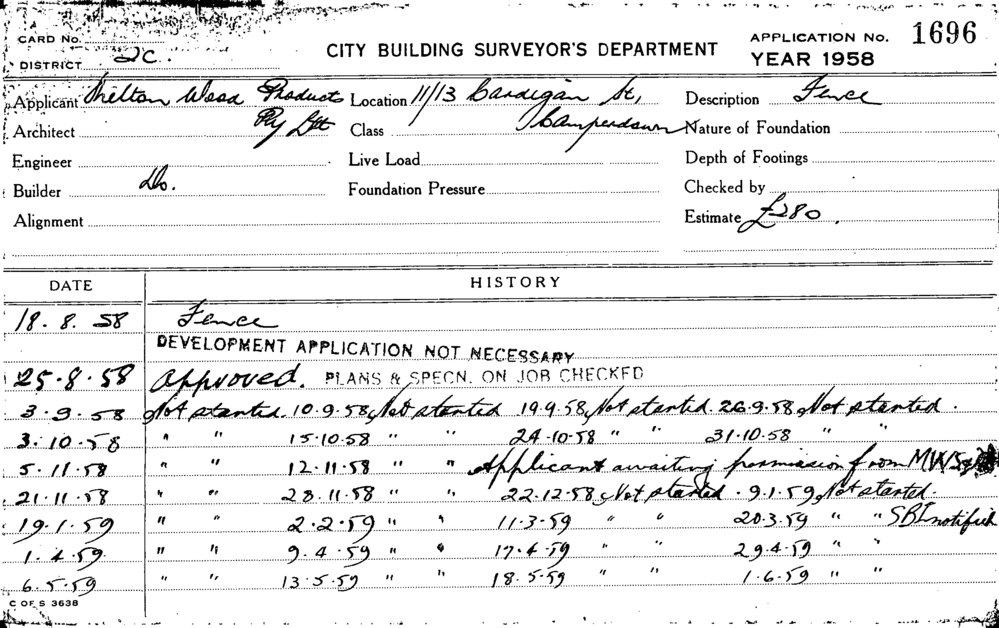 CARD No.
DISTRICT 2C.
CITY BUILDING SURVEYOR'S DEPARTMENT
APPLICATION No. 1696
YEAR 1958
Applicant Skelton Wood Products Location 11/13 Cardigan St, Description Fence
Architect Pty Ltd Class Camperdown Nature of Foundation
Engineer Live Load Depth of Footings
Builder Do. Foundation Pressure Checked by
Alignment Estimate £280.
DATE HISTORY
18.8.58 Fence
DEVELOPMENT APPLICATION NOT NECESSARY
25.8.58 Approved. PLANS & SPECN. ON JOB CHECKED
3.9.58 Not started. 10.9.58, Not started 19.9.58, Not started. 26.9.58, Not started.
3.10.58 " " 15.10.58 " " 24.10.58 " " 31.10.58 " "
5.11.58 " " 12.11.58 " " Applicant awaiting permission from MWS&
21.11.58 " " 28.11.58 " " 22.12.58, Not started. 9.1.59, Not started.
19.1.59 " " 2.2.59 " " 11.3.59 " " 20.3.59 " " SBI notified
1.4.59 " " 9.4.59 " " 17.4.59 " " 29.4.59 " "
6.5.59 " " 13.5.59 " " 18.5.59 " " 1.6.59 " "
C OF S 3638